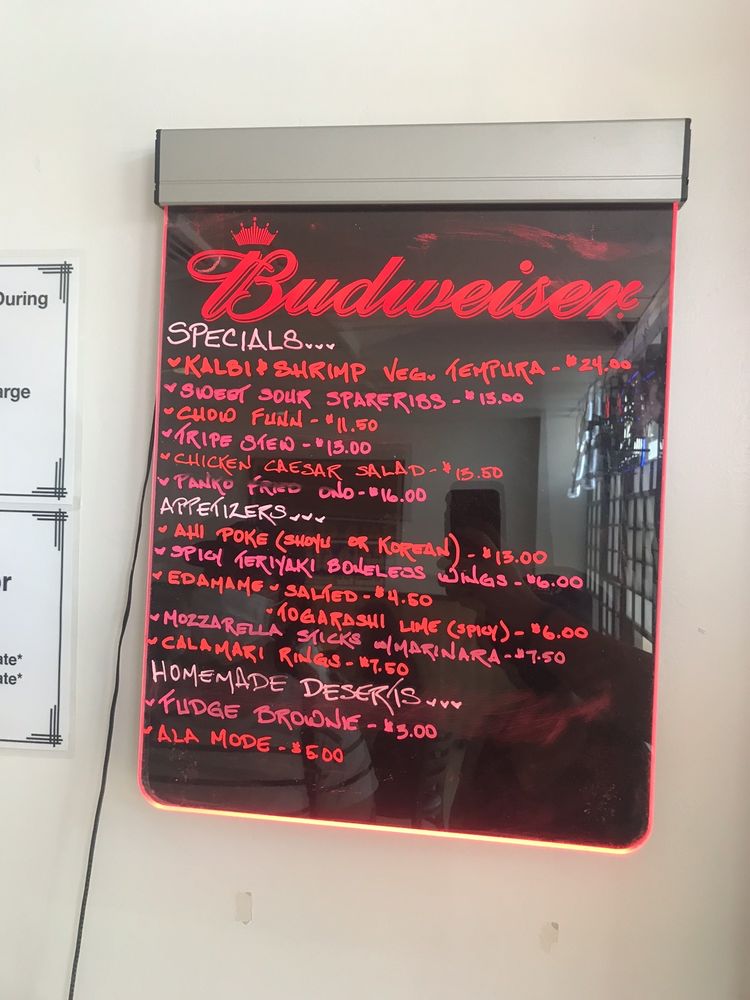 During
arge
or
ate*
ate*
Budweiser
SPECIALS...
KALBI & SHRIMP VEG. TEMPURA - $24.00
SWEET SOUR SPARERIBS - $13.00
CHOW FUNN - $11.50
TRIPE STEW - $13.00
CHICKEN CAESAR SALAD - $13.50
PANKO FRIED ONO - $16.00
APPETIZERS...
AHI POKE (SHOYU OR KOREAN) - $13.00
SPICY TERIYAKI BONELESS WINGS - $6.00
EDAMAME SALTED - $4.50
TOGARASHI LIME (SPICY) - $6.00
MOZZARELLA STICKS W/MARINARA - $7.50
CALAMARI RINGS - $7.50
HOMEMADE DESERTS...
FUDGE BROWNIE - $3.00
ALA MODE - $5.00